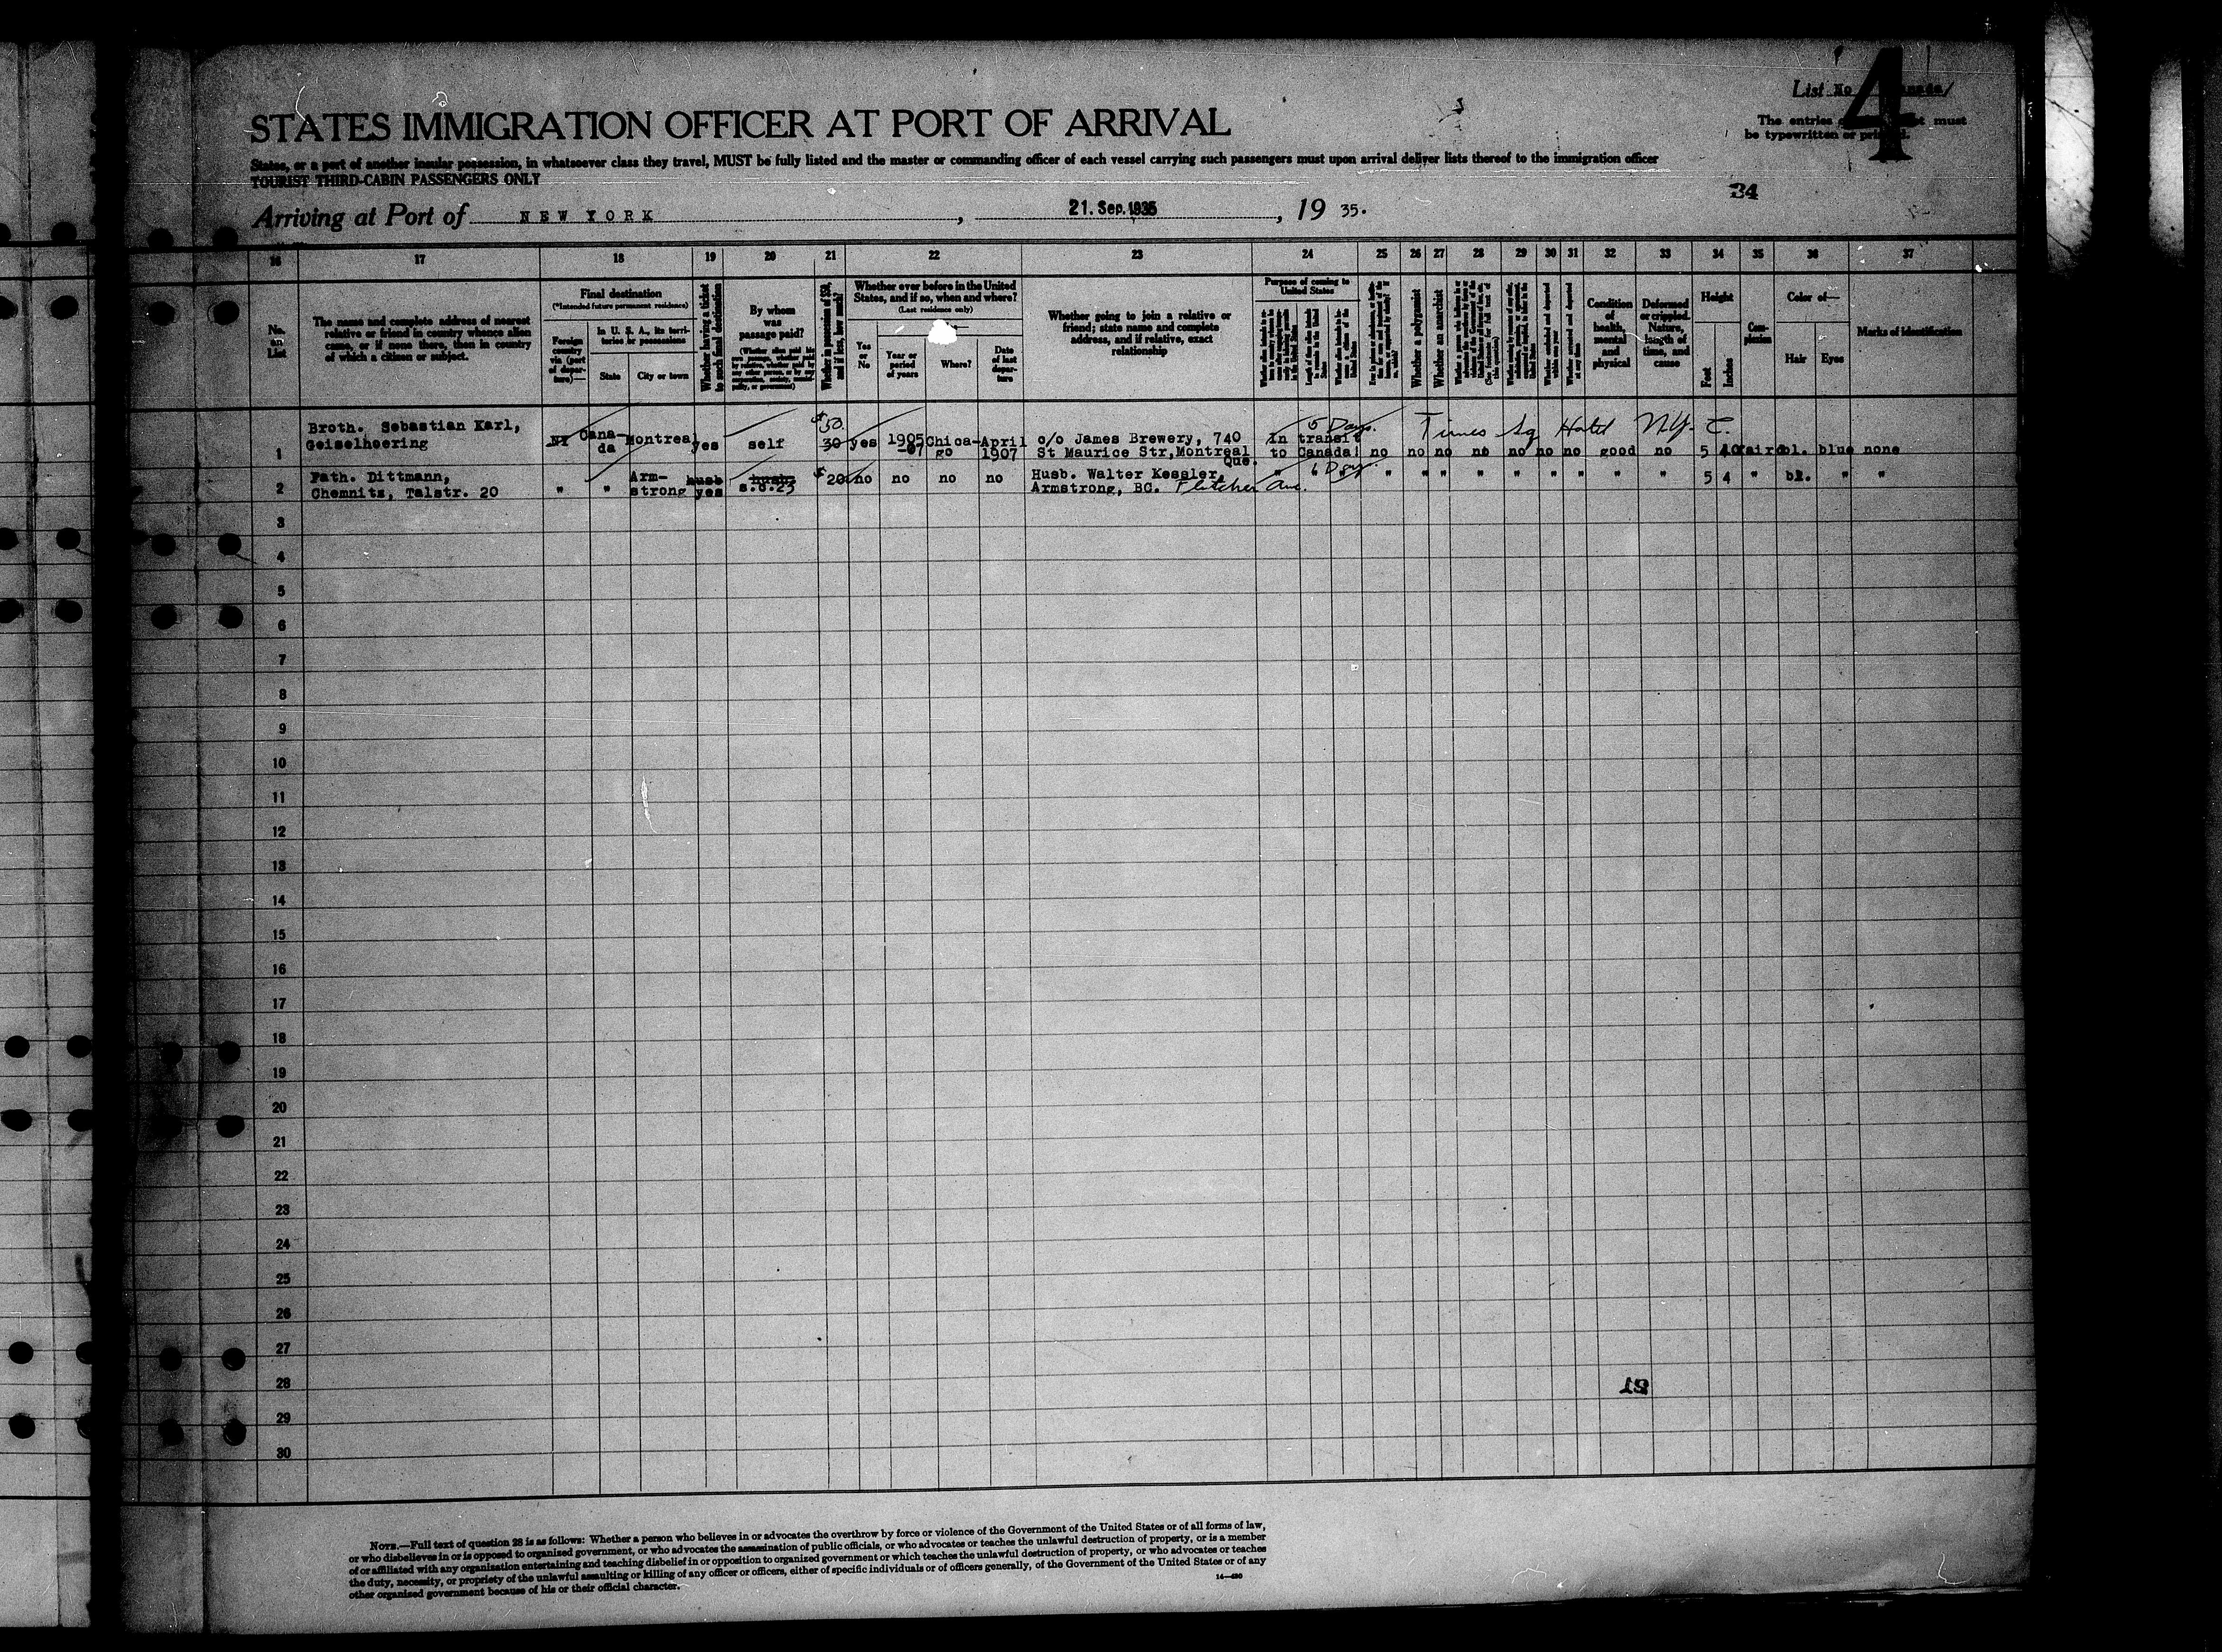 List No
4
The entries must
be typewritten or printed.
STATES IMMIGRATION OFFICER AT PORT OF ARRIVAL
States, or a port of another insular possession, in whatsoever class they travel, MUST be fully listed and the master or commanding officer of each vessel carrying such passengers must upon arrival deliver lists thereof to the immigration officer
TOURIST THIRD-CABIN PASSENGERS ONLY
34
Arriving at Port of NEW YORK, 21. Sep. 1935, 19 35.
16 17 18 19 20 21 22 23 24 25 26 27 28 29 30 31 32 33 34 35 36 37
No. on List
The name and complete address of nearest relative or friend in country whence alien came, or if none there, then in country of which a citizen or subject.
Final destination
(*Intended future permanent residence)
Foreign country via (port of departure)—
In U. S. A., its territories or possessions
State
City or town
Whether having a ticket to such final destination
By whom was passage paid?
Whether in possession of $50, and if less, how much?
Whether ever before in the United States, and if so, when and where?
(Last residence only)
Yes or No
Year or period of years
Where?
Date of last departure
Whether going to join a relative or friend; state name and complete address, and if relative, exact relationship
Purpose of coming to United States
Whether a polygamist
Whether an anarchist
Condition of health, mental and physical
Deformed or crippled. Nature, length of time, and cause
Height
Feet
Inches
Complexion
Color of—
Hair
Eyes
Marks of identification
$50. 5 Days. Times Sq Hotel N.Y. C.
Broth. Sebastian Karl, Cana-
1 Geiselhoering NY da Montreal yes self 30 yes 1905 -07 Chica-go April 1907 c/o James Brewery, 740 St Maurice Str, Montreal Que. In transit to Canada no no no no no no no good no 5 10 fair bl. blue none
Fath. Dittmann, Arm- husb husb.
2 Chemnitz, Talstr. 20 " " strong yes s.o.23 $ 20 no no no no Husb. Walter Kessler, Armstrong, BC. Fletcher Ave. " " 6 Days " " " " " " " " " 5 4 " bl. " "
3
4
5
6
7
8
9
10
11
12
13
14
15
16
17
18
19
20
21
22
23
24
25
26
27
28
29
30
21
NOTE.—Full text of question 28 is as follows: Whether a person who believes in or advocates the overthrow by force or violence of the Government of the United States or of all forms of law,
or who disbelieves in or is opposed to organized government, or who advocates the assassination of public officials, or who advocates or teaches the unlawful destruction of property, or is a member
of or affiliated with any organization entertaining and teaching disbelief in or opposition to organized government or which teaches the unlawful destruction of property, or who advocates or teaches
the duty, necessity, or propriety of the unlawful assaulting or killing of any officer or officers, either of specific individuals or of officers generally, of the Government of the United States or of any
other organized government because of his or their official character.
14—480